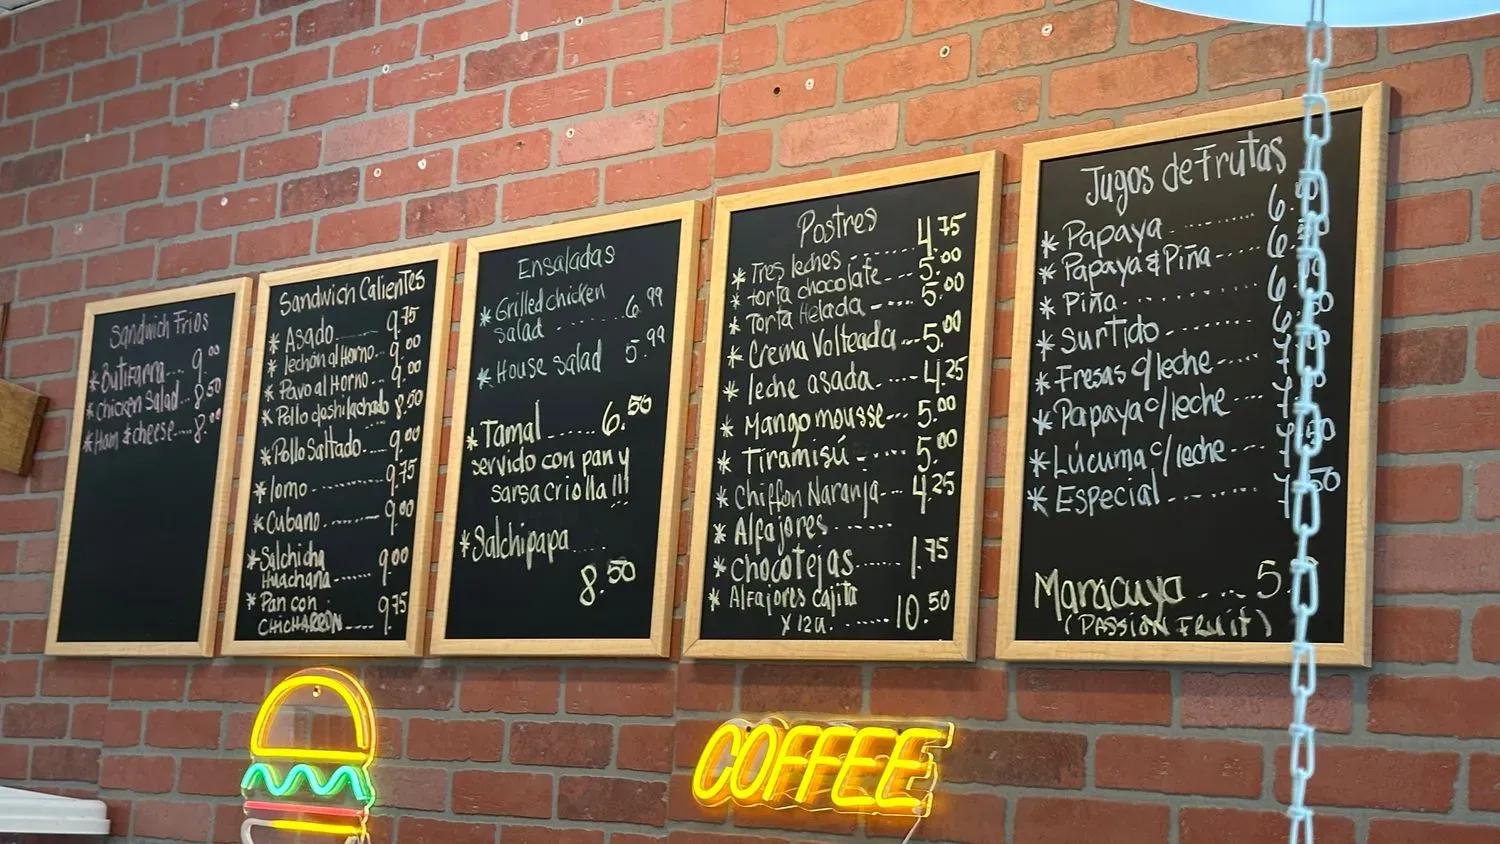 Sandwich Frios
* Butifarra.... 9.00
* chicken salad.. 8.50
* Ham & cheese.... 8.00
Sandwich Calientes
* Asado........ 9.75
* lechon al Horno... 9.00
* Pavo al Horno... 9.00
* Pollo deshilachado 8.50
* Pollo Saltado.... 9.00
* lomo.......... 9.75
* Cubano........ 9.00
* Salchicha
Huachana...... 9.00
* Pan con
CHICHARRÓN.... 9.75
Ensaladas
* Grilled chicken
salad ....... 6.99
* House salad 5.99
* Tamal ...... 6.50
servido con pan y
sarsa criolla !!!
* Salchipapa....
8.50
Postres
* Tres leches....... 4.75
* torta chocolate... 5.00
* Torta Helada..... 5.00
* Crema Volteada... 5.00
* leche asada..... 4.25
* Mango mousse... 5.00
* Tiramisú...... 5.00
* Chiffon Naranja... 4.25
* Alfajores ......
* chocotejas...... 1.75
* Alfajores cajita
x 12u. ...... 10.50
Jugos de Frutas
* Papaya ....... 6.
* Papaya & Piña.... 6.
* Piña......... 6.
* Surtido ....... 6.50
* Fresas c/leche....
* Papaya c/leche ...
* Lúcuma c/leche... 7.50
* Especial ........ 7.50
Maracuya .... 5.
(PASSION FRUIT)
COFFEE